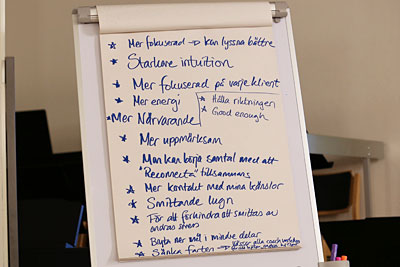 * Mer fokuserad → kan lyssna bättre
* Starkare intuition
* Mer fokuserad på varje klient
* Mer energi
* Hålla riktningen
* Good enough
* Mer Närvarande
* Mer uppmärksam
* Man kan börja samtal med att
"Reconnecta" tillsammans
* Mer kontakt med mina känslor
* Smittande lugn
* För att förhindra att smittas av
andras stress
* Bryta ner mål i mindre delar
* Sänka farten → alla coachverktyg